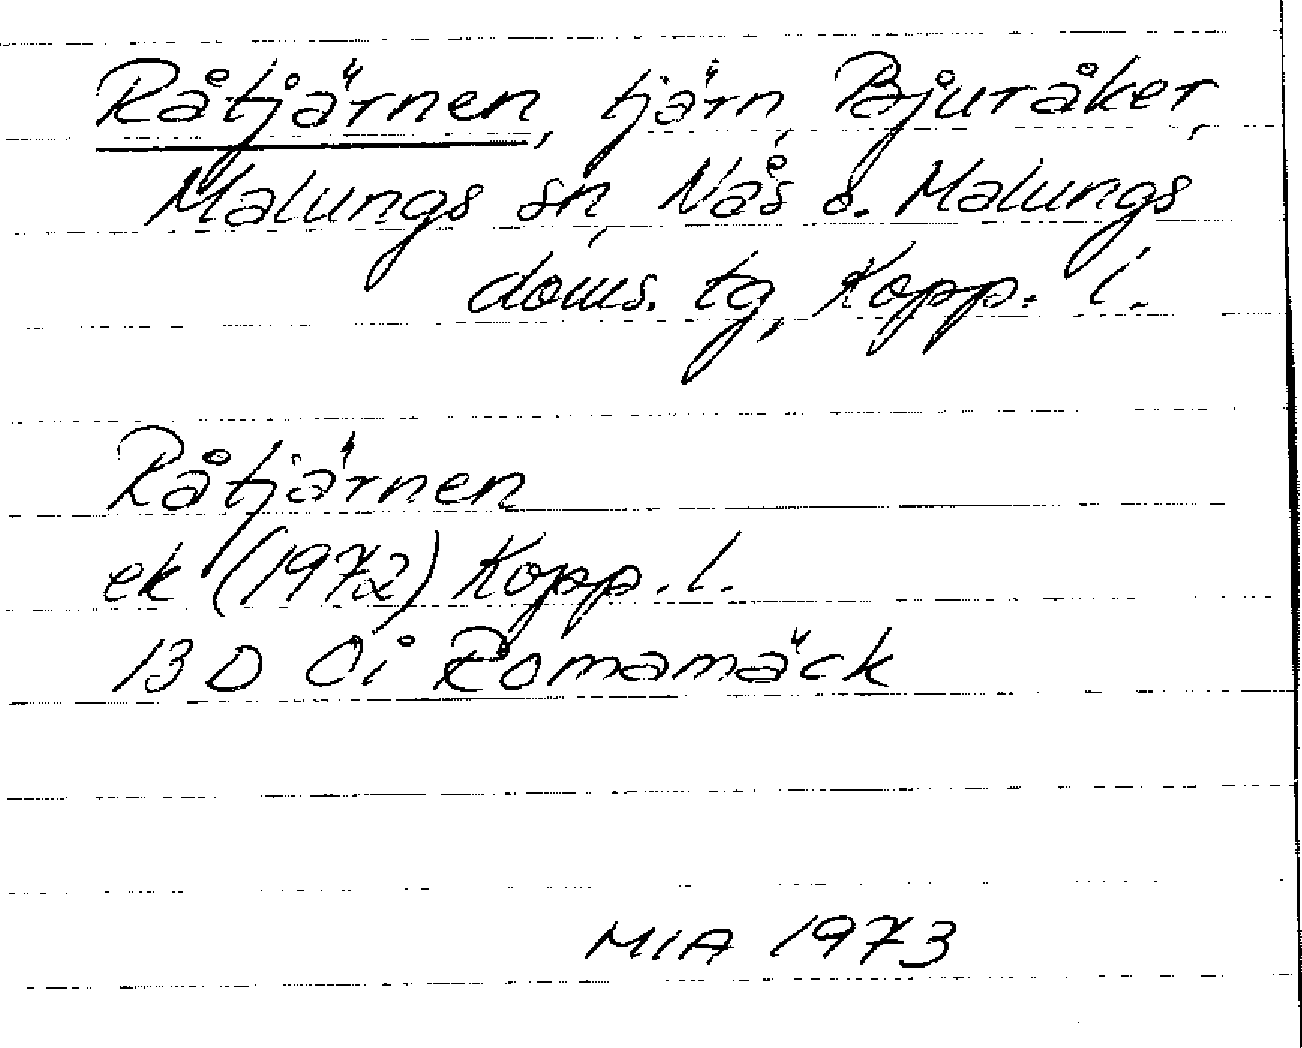 Råtjärnen, tjärn, Bjuråker,
Malungs sn, Nås o. Malungs
doms. tg, Kopp. l.
Råtjärnen
ek (1972) Kopp. l.
13 D 0i Romamäck
MIA 1973